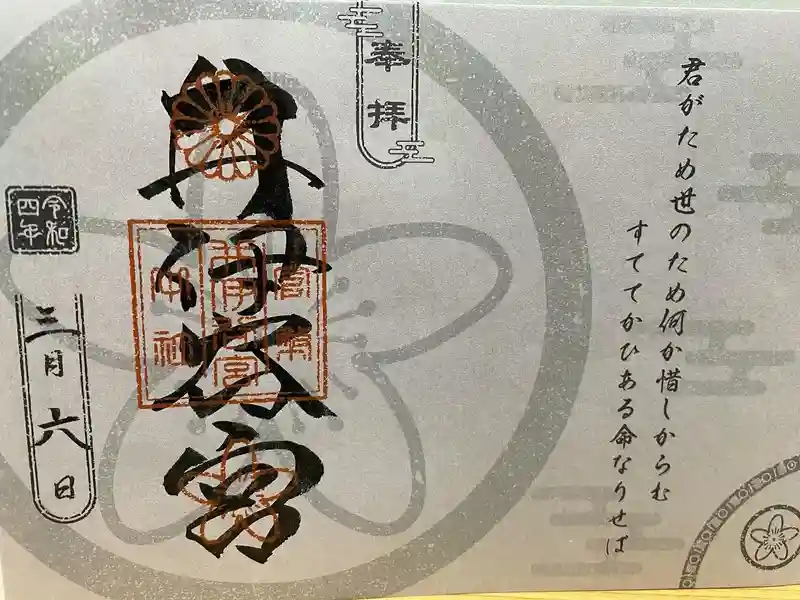 君がため世のため何か惜しからむ
すててかひある命なりせば
奉拝
井伊谷宮
令和
四年
三月六日